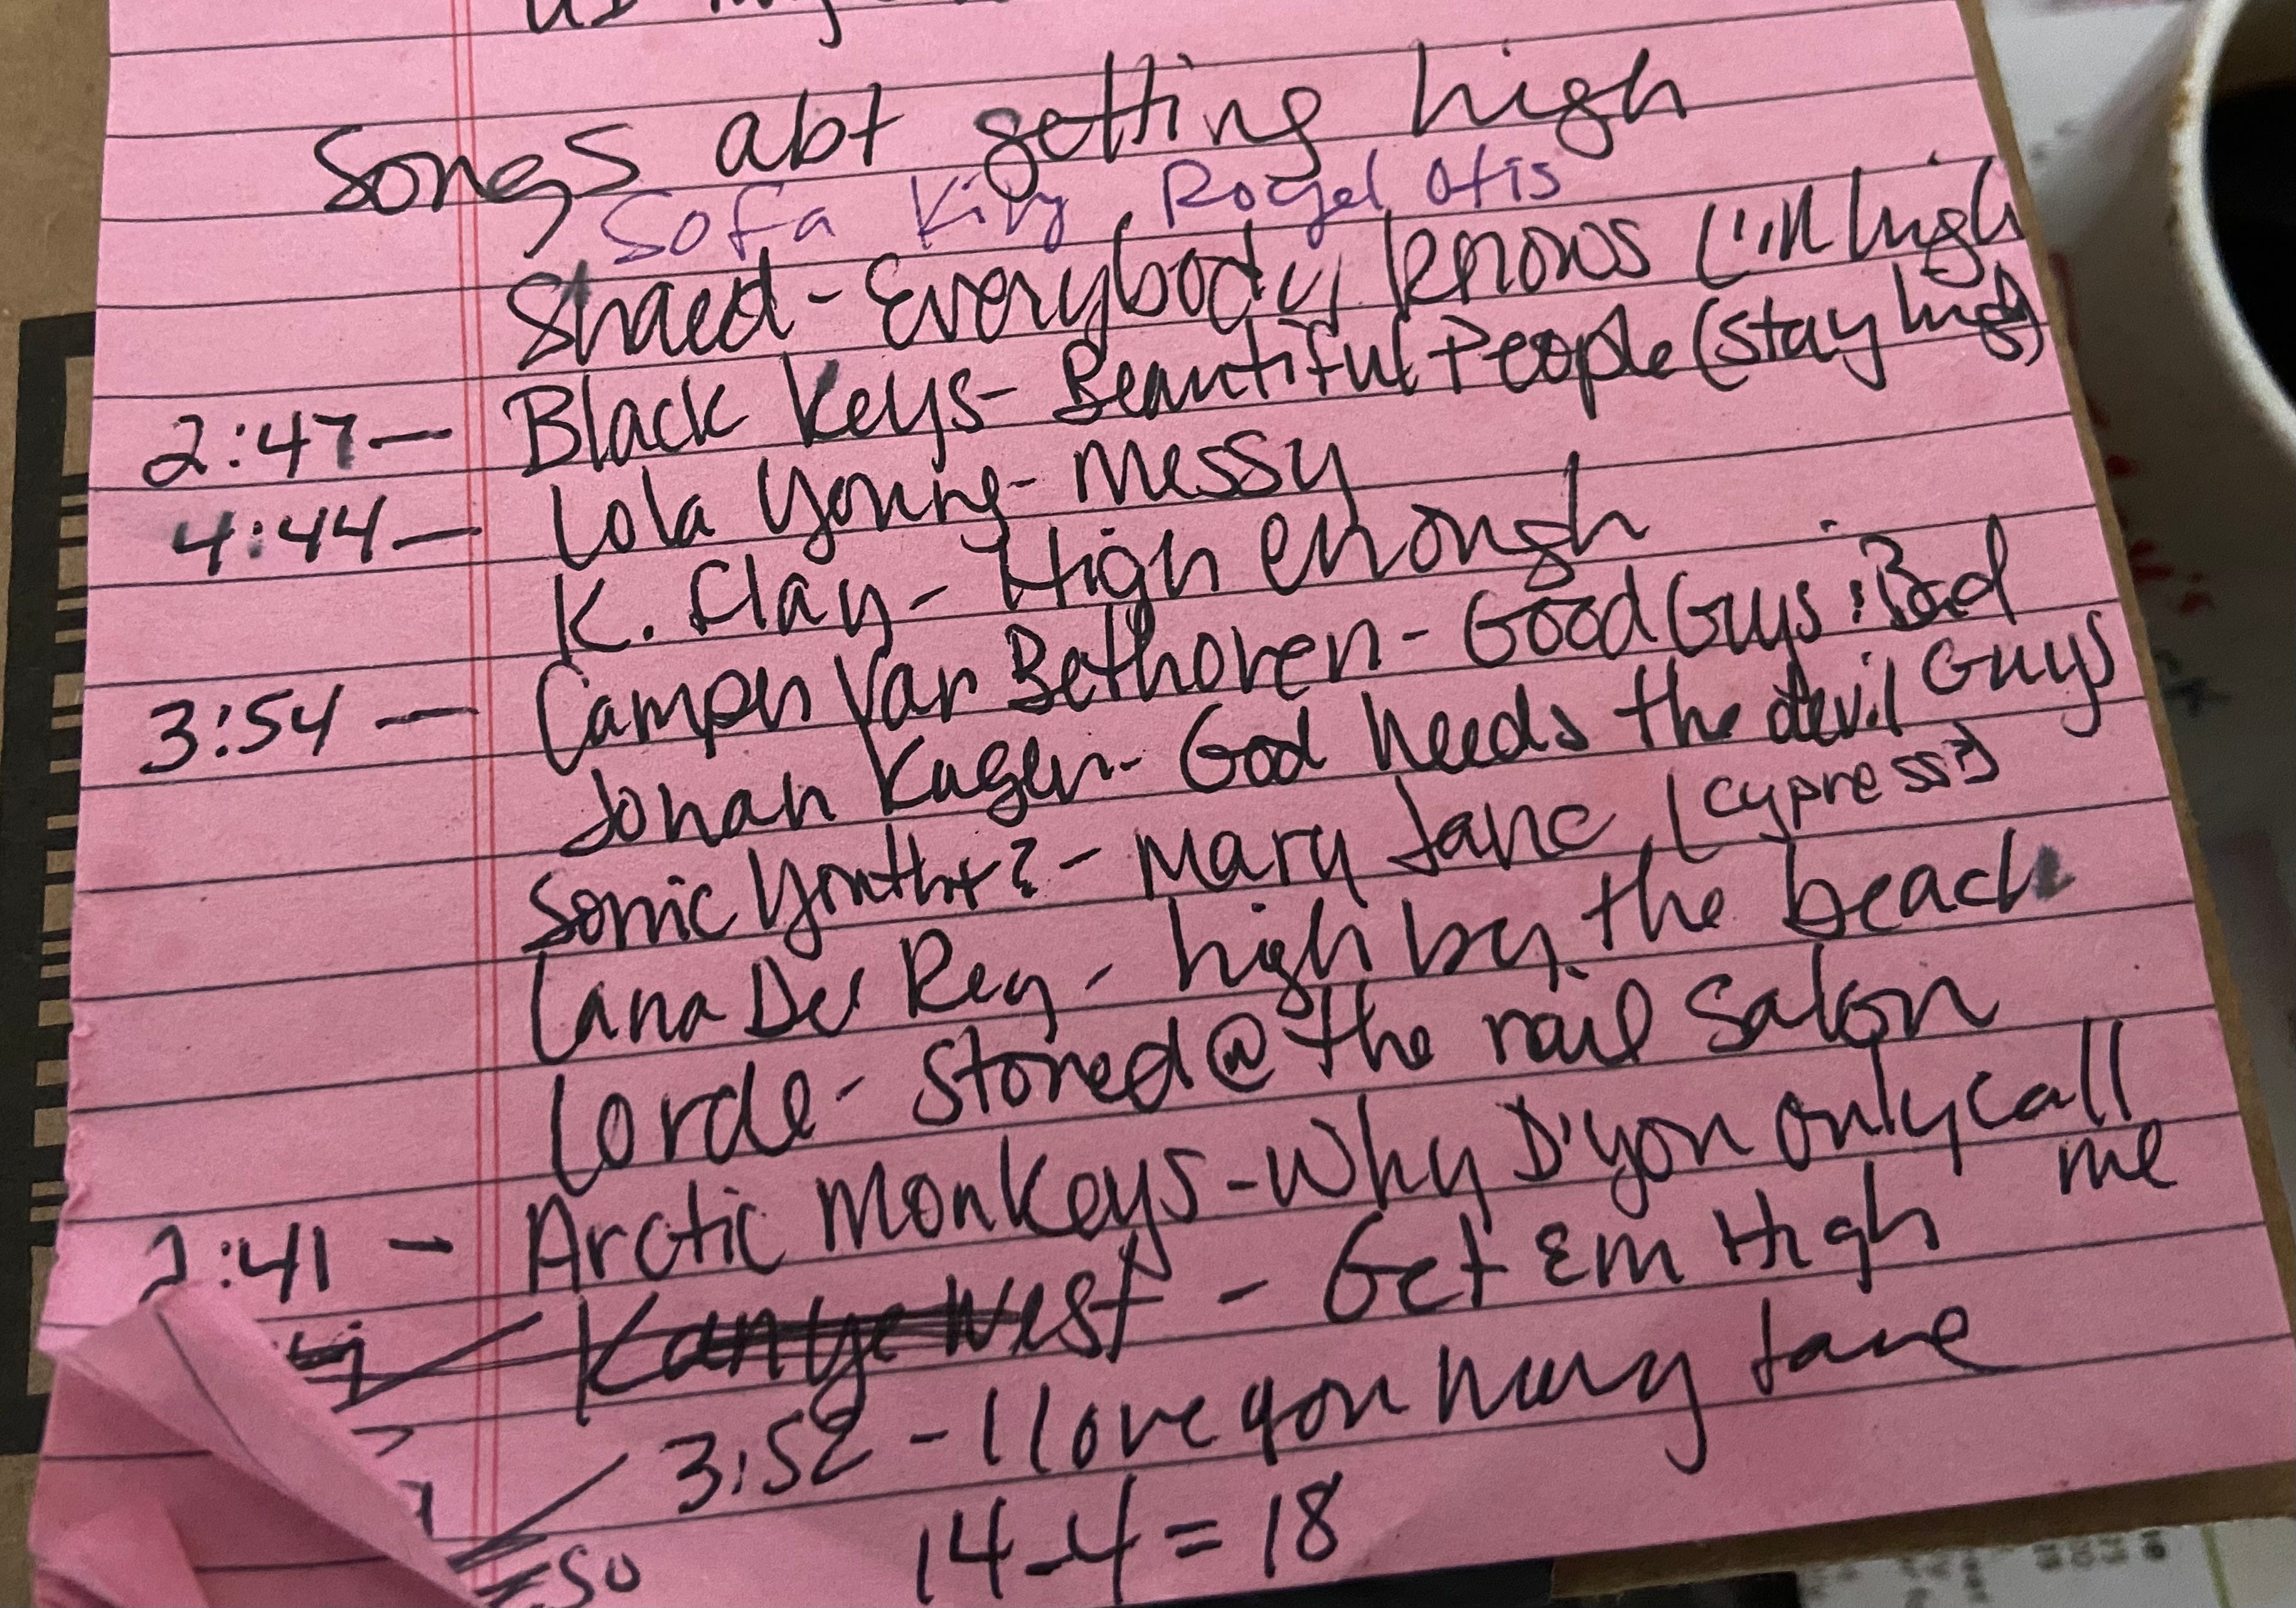 Songs abt getting high
Sofa King Royel Otis
Shaed - Everybody knows I'm high
2:47 - Black Keys - Beautiful People (stay high)
4:44 - Lola Young - Messy
K. Flay - High enough
3:54 - Campen Van Bethoven - Good Guys : Bad Guys
Jonah Kagen - God needs the devil
Sonic Youth + ? - Mary Jane (cypress?)
Lana Del Rey - high by the beach
Lorde - Stoned @ the nail salon
2:41 - Arctic Monkeys - Why D'you only call me
Kanye West - Get Em High
3:52 - I love you mary jane
14-4 = 18
:50